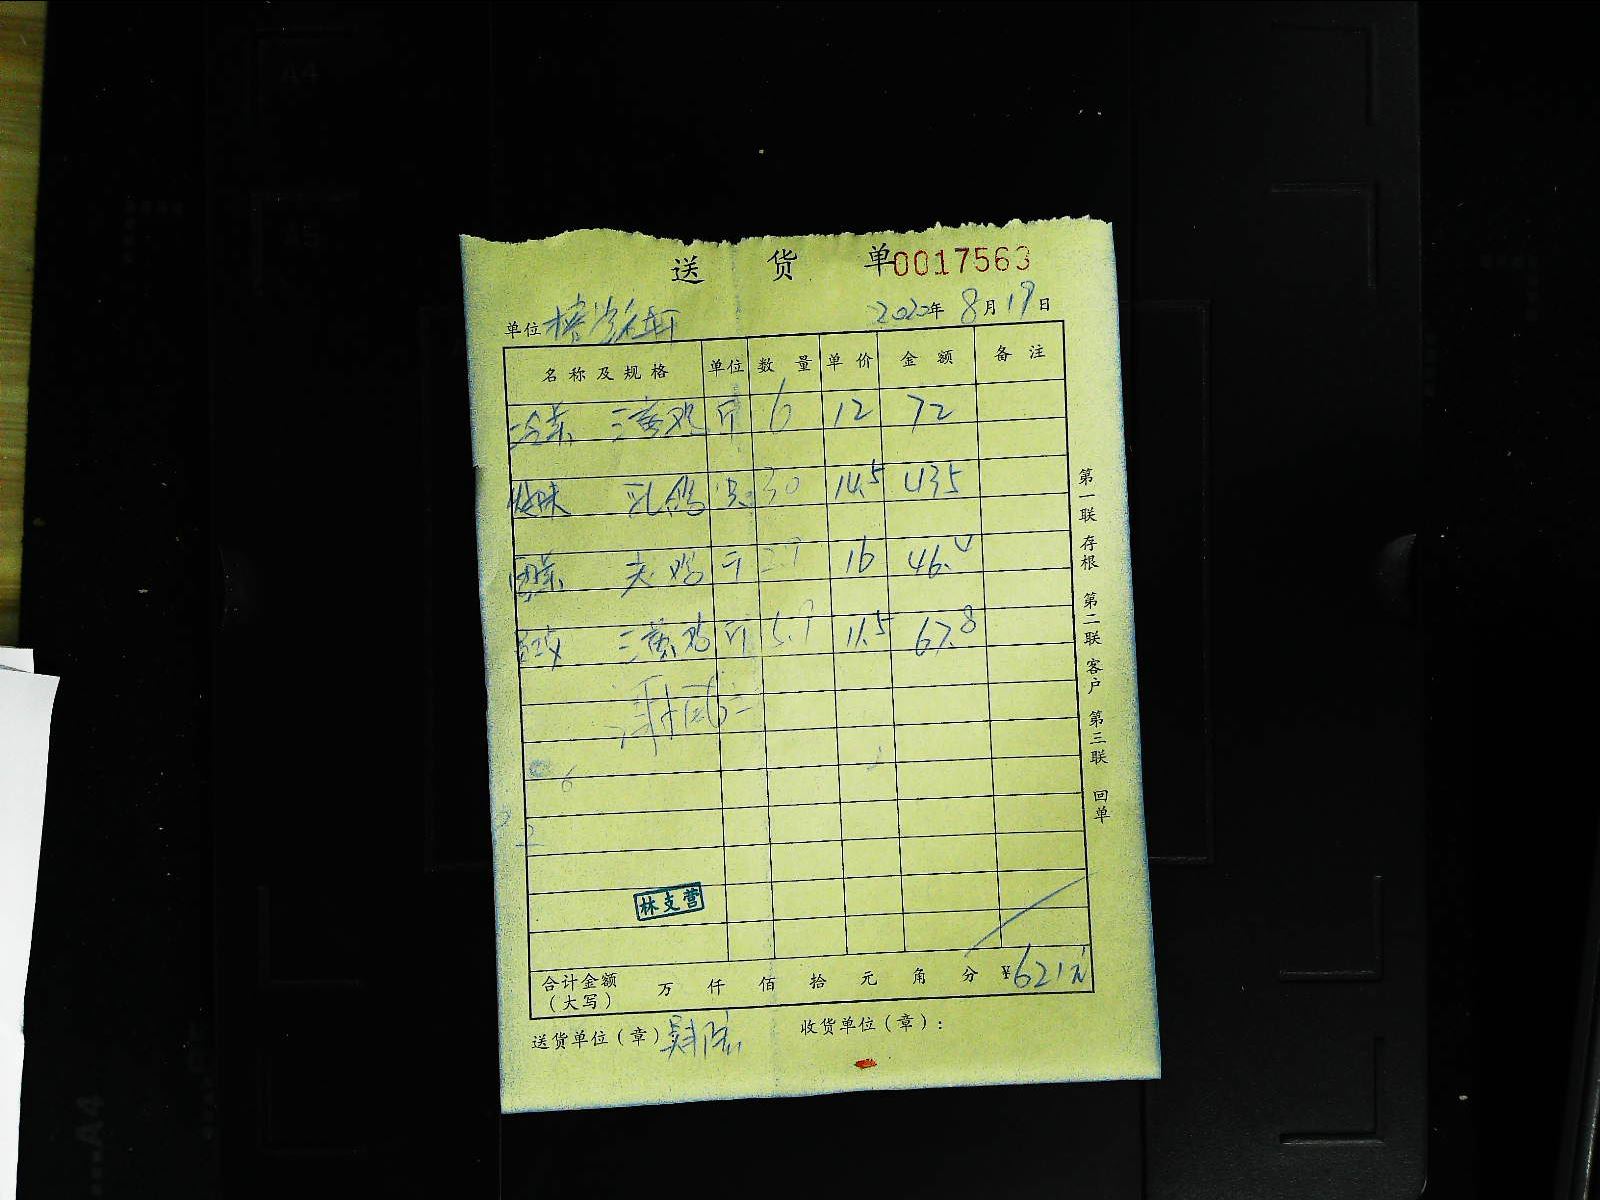 送 货 单 0017563
单位 2020年 8月19日
名称及规格 单位 数量 单价 金额 备注
冷菜 三黄鸡 斤 6 12 72
烧味 乳鸽 只 30 14.5 435
老鸡 斤 2.9 16 46.4
员工 三黄鸡 斤 5.9 11.5 67.8
6
林支营
合计金额（大写） 万 仟 佰 拾 元 角 分 ¥621元
送货单位（章） 收货单位（章）：
第一联 存根 第二联 客户 第三联 回单
A4